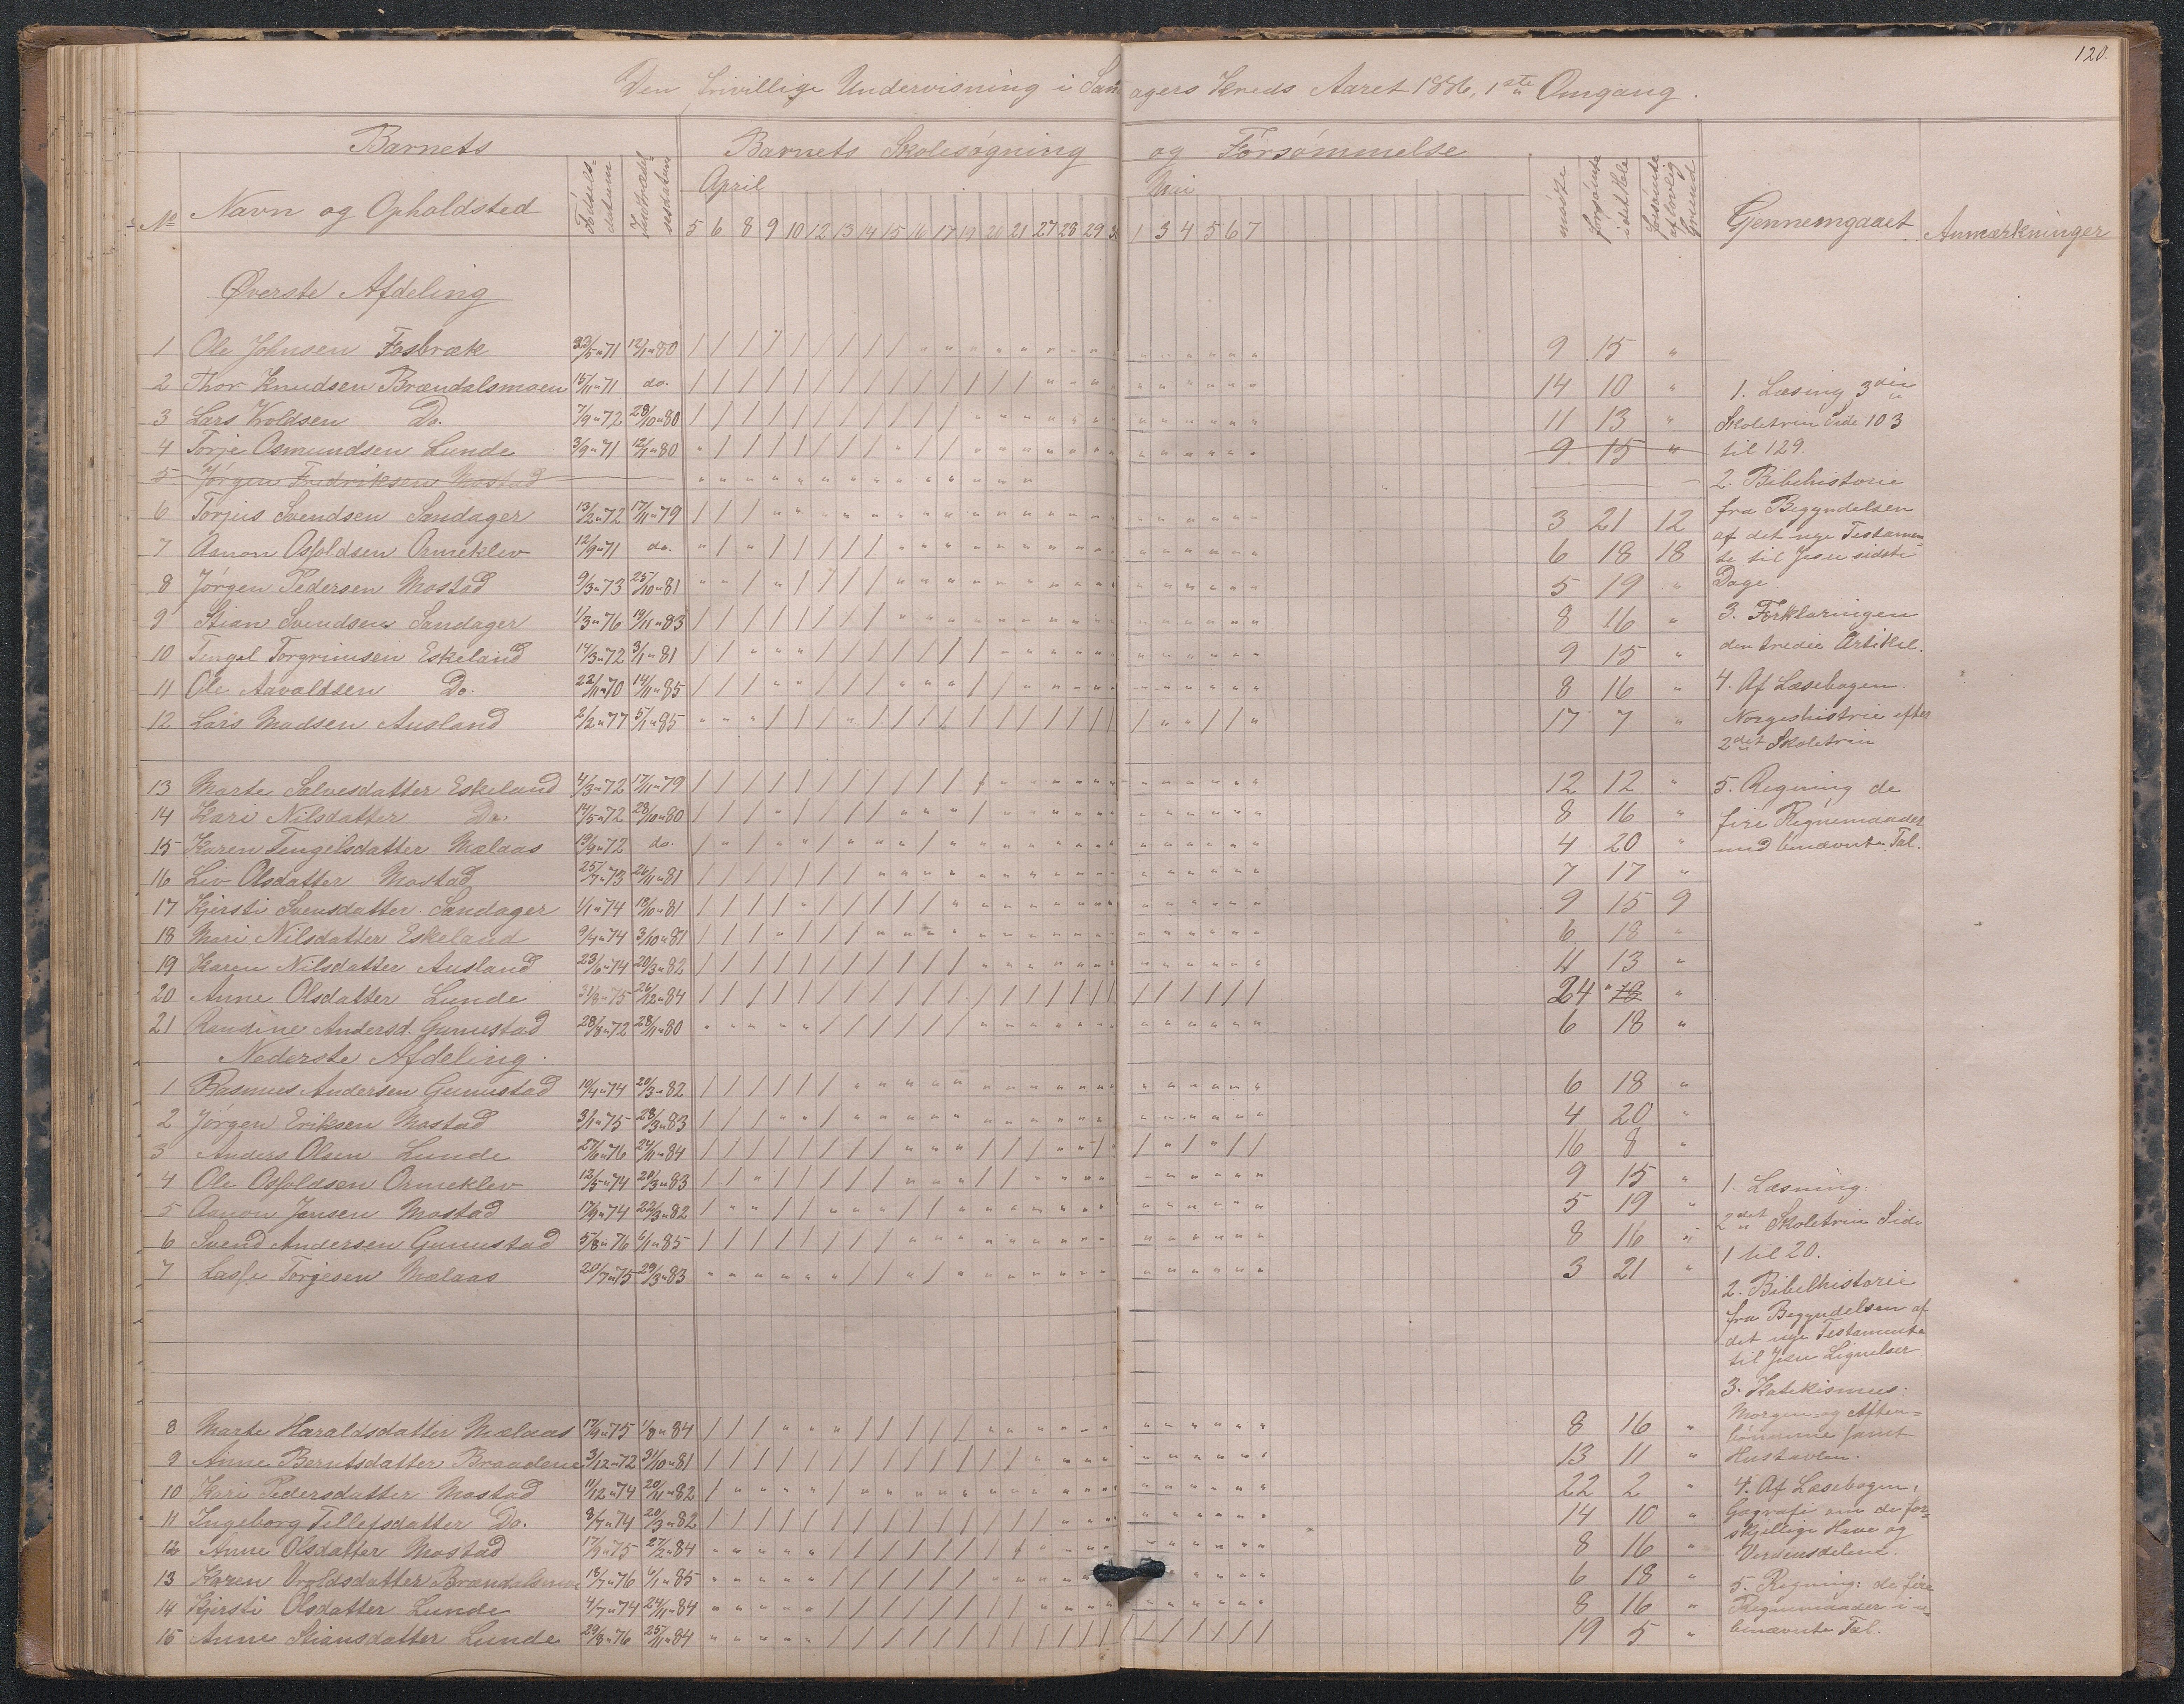 120.
Den frivillige Undervisning i Sandagers Kreds Aaret 1886, 1ste Omgang.
Barnets Barnets Skolesøgning og Forsømmelse
No Navn og Opholdsted Fødselsdatum Indtrædelsesdatum April Mai mødte forsømte i det Hele forsømte af lovlig Grund Gennemgaaet Anmærkninger
5 6 8 9 10 12 13 14 15 16 17 19 20 21 27 28 29 30 1 3 4 5 6 7
Øverste Afdeling
1 Ole Johnsen Fosbræk 22/5 " 71 12/1 " 80 9 15 "
2 Thor Knudsen Brændalsmoen 15/11 " 71 do. 14 10 "
3 Lars Woldsen Do. 7/9 " 72 28/10 " 80 11 13 "
4 Torje Osmundsen Lunde 3/9 " 71 12/1 " 80 9 15 "
5 Jørgen Fredriksen Mostad
6 Torjus Svendsen Sandager 13/2 " 72 17/11 " 79 3 21 12
7 Aanon Osfoldsen Ormeklev 12/9 " 71 do. 6 18 18
8 Jørgen Pedersen Mostad 9/3 " 73 25/10 " 81 5 19 "
9 Stian Svendsen Sandager 1/3 " 76 19/11 " 83 8 16 "
10 Tengel Torgrimsen Eskeland 14/3 " 72 3/1 " 81 9 15 "
11 Ole Aavaldsen Do. 22/11 " 70 14/11 " 85 8 16 "
12 Lars Madsen Ausland 2/2 " 77 5/1 " 85 17 7 "
13 Marte Salvesdatter Eskeland 4/3 " 72 17/11 " 79 12 12 "
14 Kari Nilsdatter Do. 14/5 " 72 28/10 " 80 8 16 "
15 Karen Tengelsdatter Mælaas 19/9 " 72 do. 4 20 "
16 Liv Olsdatter Mostad 25/7 " 73 26/11 " 81 7 17 "
17 Kjersti Svensdatter Sandager 1/1 " 74 18/10 " 81 9 15 9
18 Mari Nilsdatter Eskeland 9/4 " 74 3/10 " 81 6 18 "
19 Karen Nilsdatter Ausland 23/6 " 74 20/3 " 82 11 13 "
20 Anne Olsdatter Lunde 31/8 " 75 26/12 " 84 24 " "
21 Randine Andersd. Gunnstad 28/8 " 72 28/11 " 80 6 18 "
Nederste Afdeling.
1 Rasmus Andersen Gunnstad 19/4 " 74 20/3 " 82 6 18 "
2 Jørgen Eriksen Mostad 3/1 " 75 28/3 " 83 4 20 "
3 Anders Olsen Lunde 27/6 " 76 24/11 " 84 16 8 "
4 Ole Osfoldsen Ormeklev 12/5 " 74 29/3 " 83 9 15 "
5 Aanon Jensen Mostad 17/9 " 74 22/3 " 82 5 19 "
6 Svend Andersen Gunnstad 5/8 " 76 6/1 " 85 8 16 "
7 Lasse Torjesen Mælaas 20/7 " 75 29/3 " 83 3 21 "
8 Marte Haraldsdatter Mælaas 17/9 " 75 1/8 " 84 8 16 "
9 Anne Berntsdatter Braadene 3/12 " 72 31/10 " 81 13 11 "
10 Kari Pedersdatter Mostad 11/12 " 74 20/11 " 82 22 2 "
11 Ingeborg Tellefsdatter Do. 8/7 " 74 20/3 " 82 14 10 "
12 Anne Olsdatter Mostad 17/9 " 75 27/2 " 84 8 16 "
13 Karen Oroldsdatter Brændalsmoe 18/7 " 76 6/1 " 85 6 18 "
14 Kjersti Olsdatter Lunde 4/7 " 74 24/11 " 84 8 16 "
15 Anne Stiansdatter Lunde 29/8 " 76 25/11 " 84 19 5 "
1. Læsning 3die
Skoletrin Side 103
til 129.
2. Bibelhistorie
fra Begyndelsen
af det nye Testamen=
te til Jesu sidste
Dage
3. Forklaringen
den tredie Artikel.
4. Af Læsebogen.
Norgeshistrie efter
2det Skoletrin
5. Regning de
fire Regnemaader
med benævnte Tal.
1. Læsning:
2det Skoletrin Side
1 til 20.
2. Bibelhistorie
fra Begyndelsen af
det nye Testamente
til Jesu Lignelser.
3. Katekismus:
Morgen= og Aften=
bønnerne samt
Hustavlen.
4. Af Læsebogen,
Gografi om de for=
skjellige Have og
Verdensdelene.
5. Regning: de fire
Regnemaader i u=
benævnte Tal.